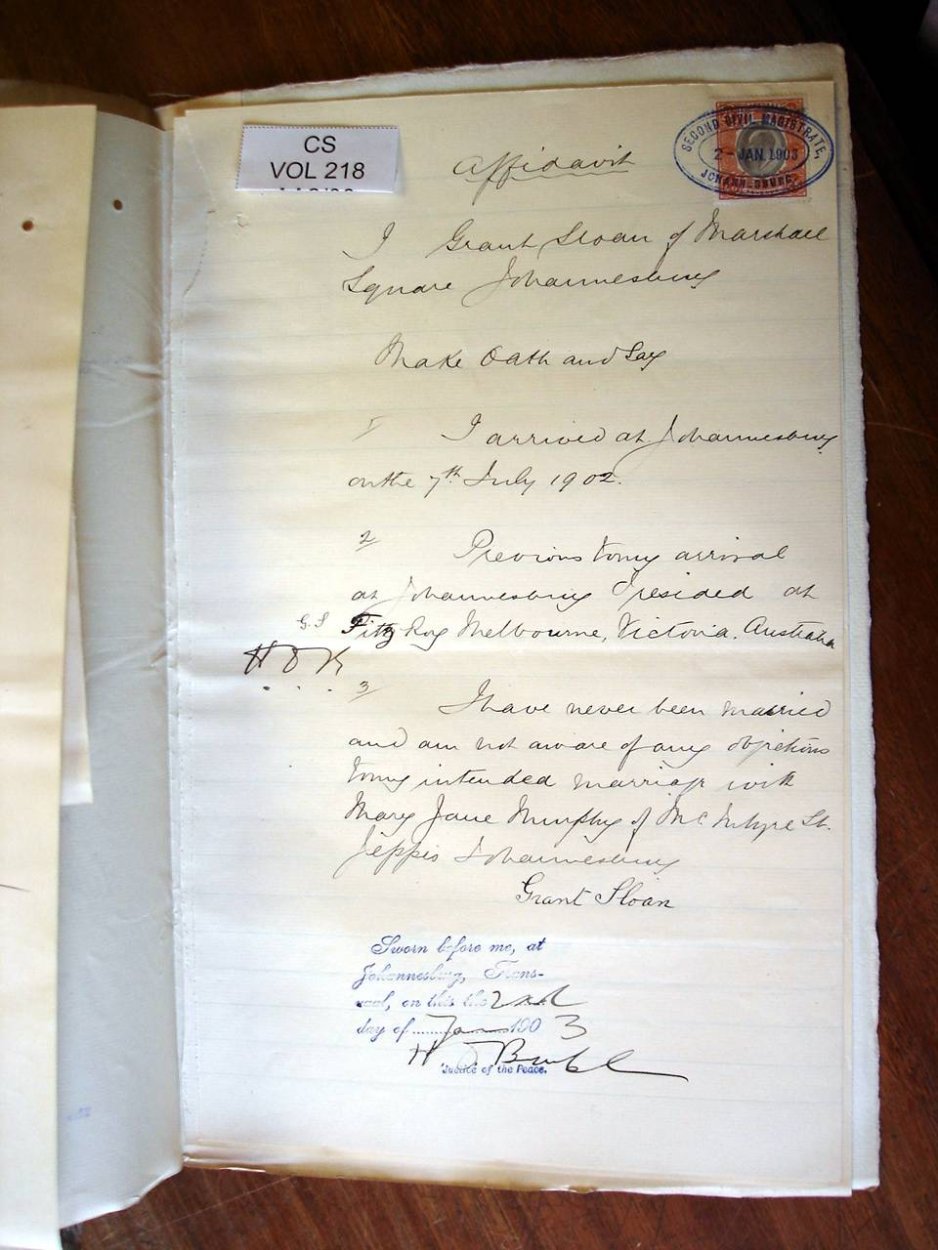 CS
VOL 218
SECOND CIVIL MAGISTRATE,
2 - JAN. 1903
JOHANNESBURG
Affidavit
I Grant Sloan of Marshall
Square Johannesburg
Make Oath and Say
1 I arrived at Johannesburg
on the 7th July 1902.
2 Previous to my arrival
at Johannesburg I resided at
G.S Fitz Roy Melbourne, Victoria. Australia
3 I have never been married
and am not aware of any objections
to my intended marriage with
Mary Jane Murphy of McIntyre St.
Jeppis Johannesburg
Grant Sloan
Sworn before me, at
Johannesburg, Trans-
vaal, on this the 2nd
day of Jan 1903
Justice of the Peace.